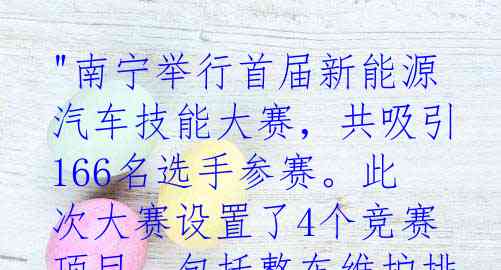 "南宁举行首届新能源
汽车技能大赛，共吸引
166名选手参赛。此
次大赛设置了4个竞赛
项目，包括整车维护排